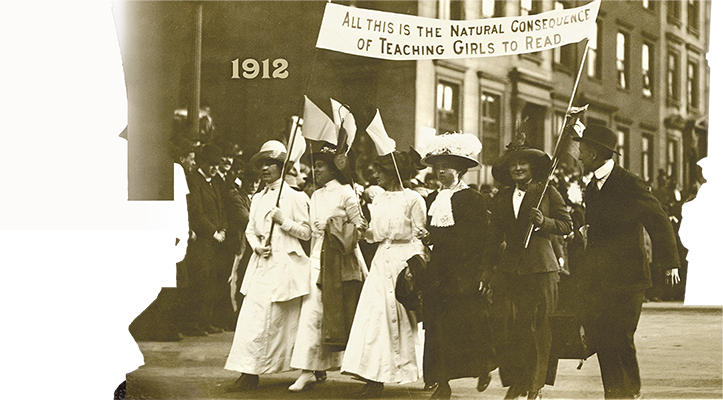 ALL THIS IS THE NATURAL CONSEQUENCE
OF TEACHING GIRLS TO READ
1912